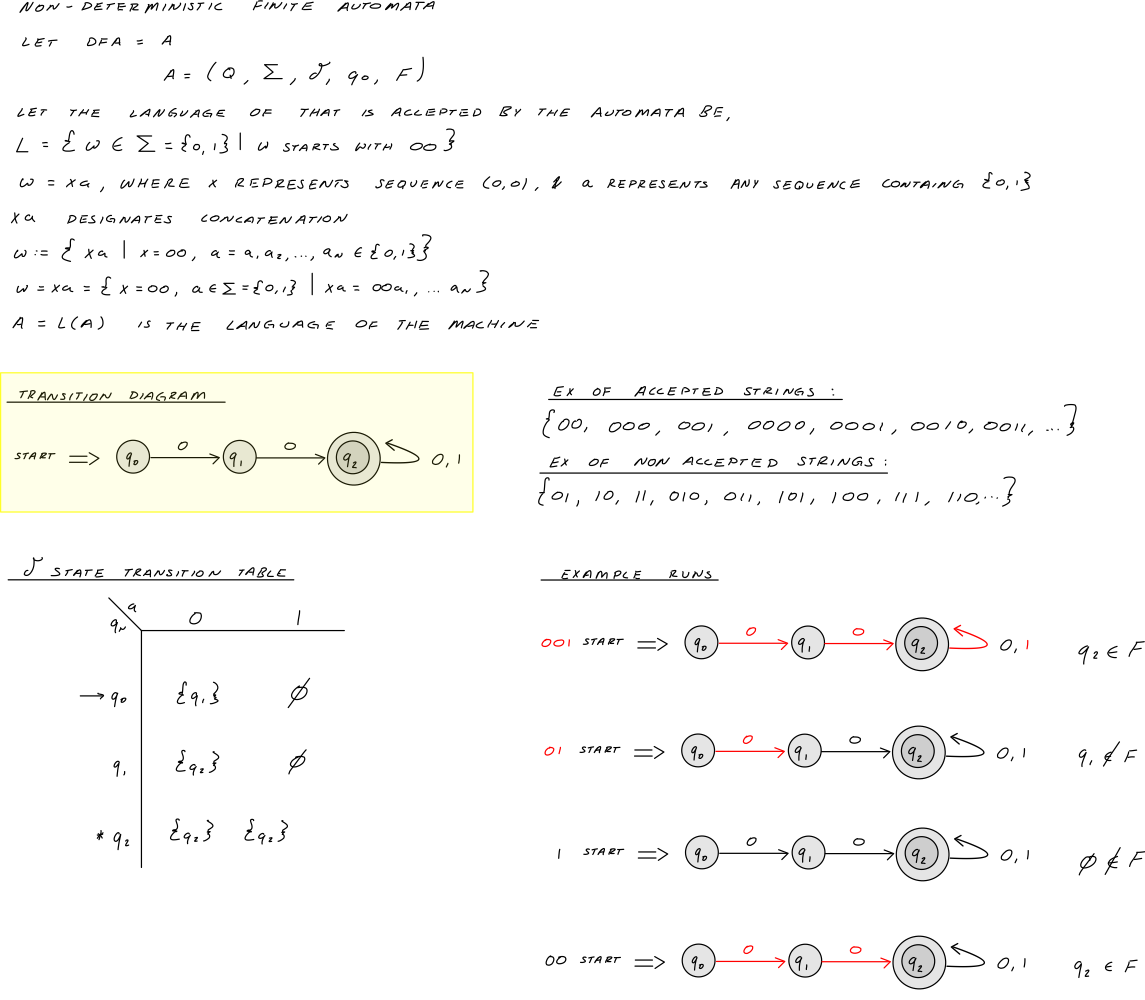 NON-DETERMINISTIC FINITE AUTOMATA
LET DFA = A
A = (Q, Σ, δ, q₀, F)
LET THE LANGUAGE OF THAT IS ACCEPTED BY THE AUTOMATA BE,
L = {w ∈ Σ = {0,1} | w STARTS WITH 00}
w = xa, WHERE x REPRESENTS SEQUENCE (0,0), & a REPRESENTS ANY SEQUENCE CONTAING {0,1}
xa DESIGNATES CONCATENATION
w := { xa | x = 00, a = a₁a₂,..., aₙ ∈ {0,1}}
w = xa = { x = 00, a ∈ Σ = {0,1} | xa = 00a₁,... aₙ}
A = L(A) IS THE LANGUAGE OF THE MACHINE
TRANSITION DIAGRAM
START => q₀ 0 q₁ 0 q₂ 0,1
EX OF ACCEPTED STRINGS:
{00, 000, 001, 0000, 0001, 0010, 0011, ...}
EX OF NON ACCEPTED STRINGS:
{01, 10, 11, 010, 011, 101, 100, 111, 110,...}
δ STATE TRANSITION TABLE
a
qₙ 0 1
→ q₀ {q₁} ∅
q₁ {q₂} ∅
* q₂ {q₂} {q₂}
EXAMPLE RUNS
001 START => q₀ 0 q₁ 0 q₂ 0,1 q₂ ∈ F
01 START => q₀ 0 q₁ 0 q₂ 0,1 q₁ ∉ F
1 START => q₀ 0 q₁ 0 q₂ 0,1 ∅ ∉ F
00 START => q₀ 0 q₁ 0 q₂ 0,1 q₂ ∈ F